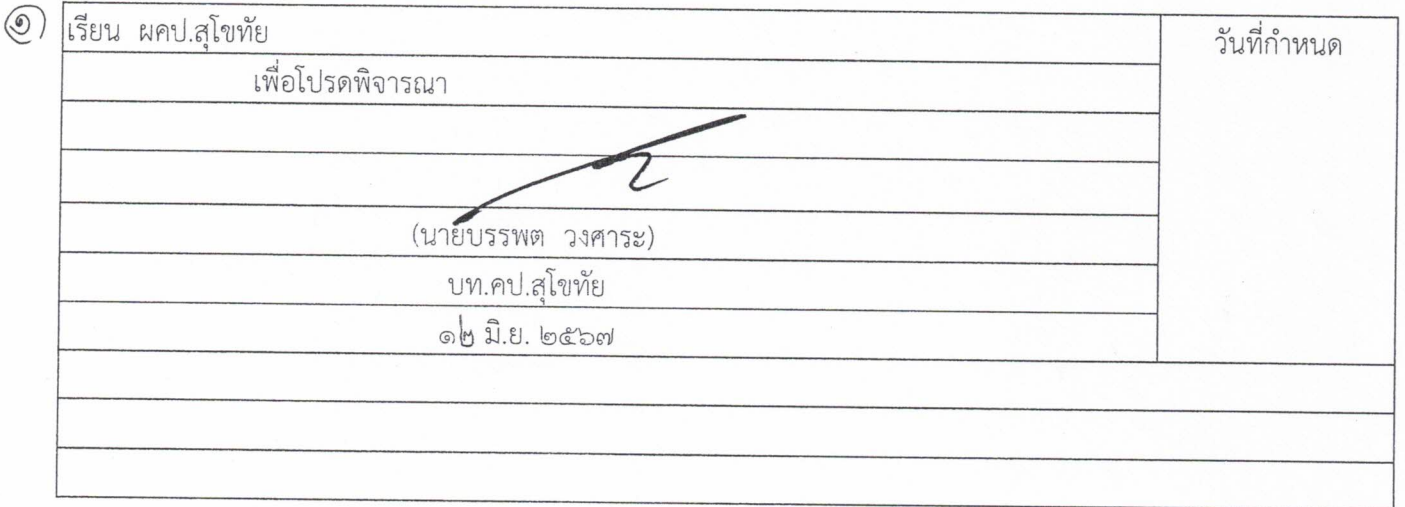 ๑
เรียน ผคป.สุโขทัย
วันที่กำหนด
เพื่อโปรดพิจารณา
(นายบรรพต วงศาระ)
บท.คป.สุโขทัย
๑๒ มิ.ย. ๒๕๖๗